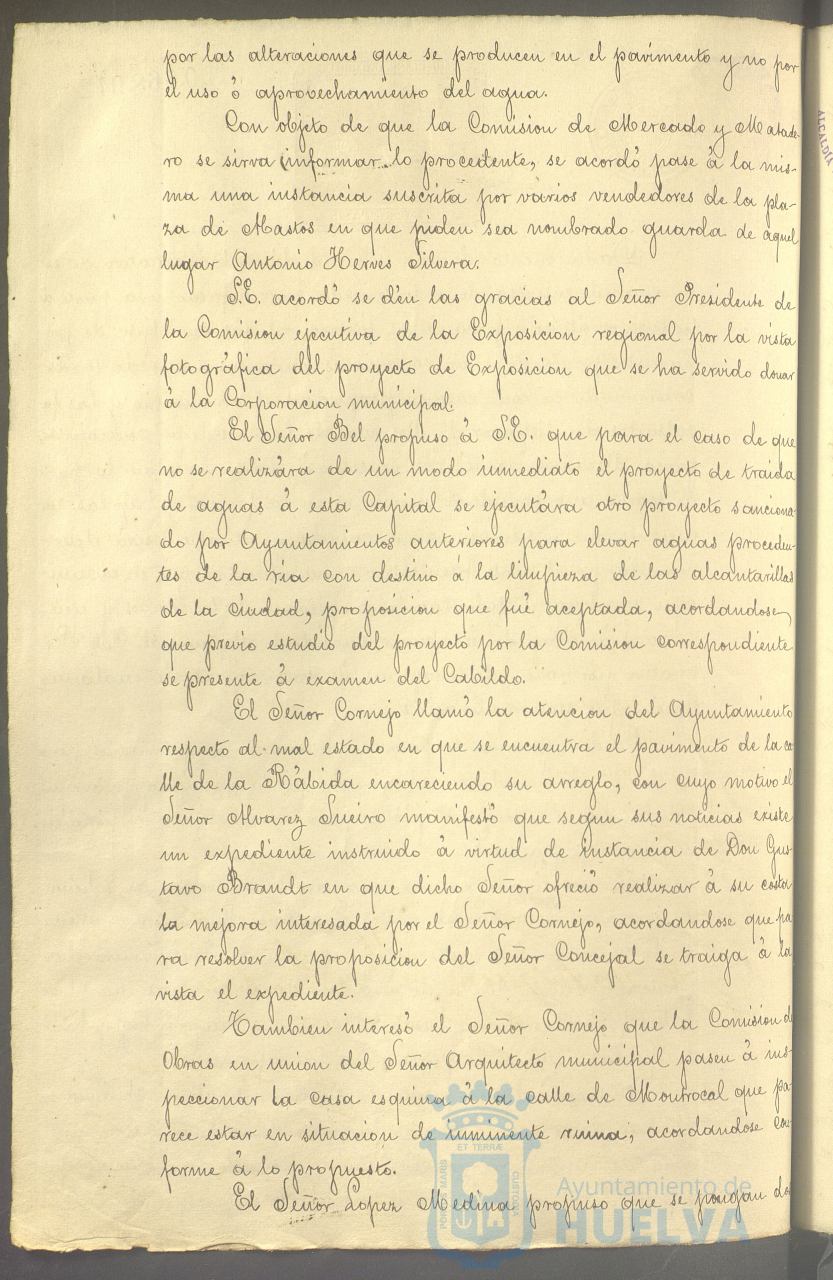 por las alteraciones que se producen en el pavimento y no por
el uso ó aprovechamiento del agua.
Con objeto de que la Comision de Mercado y Matade-
ro se sirva informar lo procedente, se acordó pase á la mis-
ma una instancia suscrita por varios vendedores de la pla-
za de Mastos en que piden sea nombrado guarda de aquel
lugar Antonio Herves Silvera.
S.E. acordó se dén las gracias al Señor Presidente de
la Comision ejecutiva de la Exposicion regional por la vista
fotográfica del proyecto de Exposicion que se ha servido donar
á la Corporacion municipal.
El Señor Bel propuso á S.E. que para el caso de que
no se realizára de un modo inmediato el proyecto de traida
de aguas á esta Capital se ejecutára otro proyecto sanciona-
do por Ayuntamientos anteriores para elevar aguas proceden-
tes de la ria con destino á la limpieza de las alcantarillas
de la Ciudad, proposicion que fué aceptada, acordandose
que previo estudio del proyecto por la Comision correspondiente
se presente á examen del Cabildo.
El Señor Cornejo llamó la atencion del Ayuntamiento
respecto al mal estado en que se encuentra el pavimento de la ca
lle de la Rábida encareciendo su arreglo, con cuyo motivo el
Señor Alvarez Sueiro manifestó que segun sus noticias existe
un expediente instruido á virtud de instancia de Don Gus-
tavo Brandt en que dicho Señor ofreció realizar á su costa
la mejora interesada por el Señor Cornejo, acordandose que pa
ra resolver la proposicion del Señor Concejal se traiga á la
vista el expediente.
Tambien interesó el Señor Cornejo que la Comision de
Obras en union del Señor Arquitecto municipal pasen á ins-
peccionar la casa esquina á la calle de Monrocal que pa-
rece estar en situacion de inminente ruina, acordandose con
forme á lo propuesto.
El Señor Lopez Medina propuso que se pongan dos
ALCALDIA
PORTUS MARIS ET TERRÆ CUSTODIA
Ayuntamiento de
HUELVA